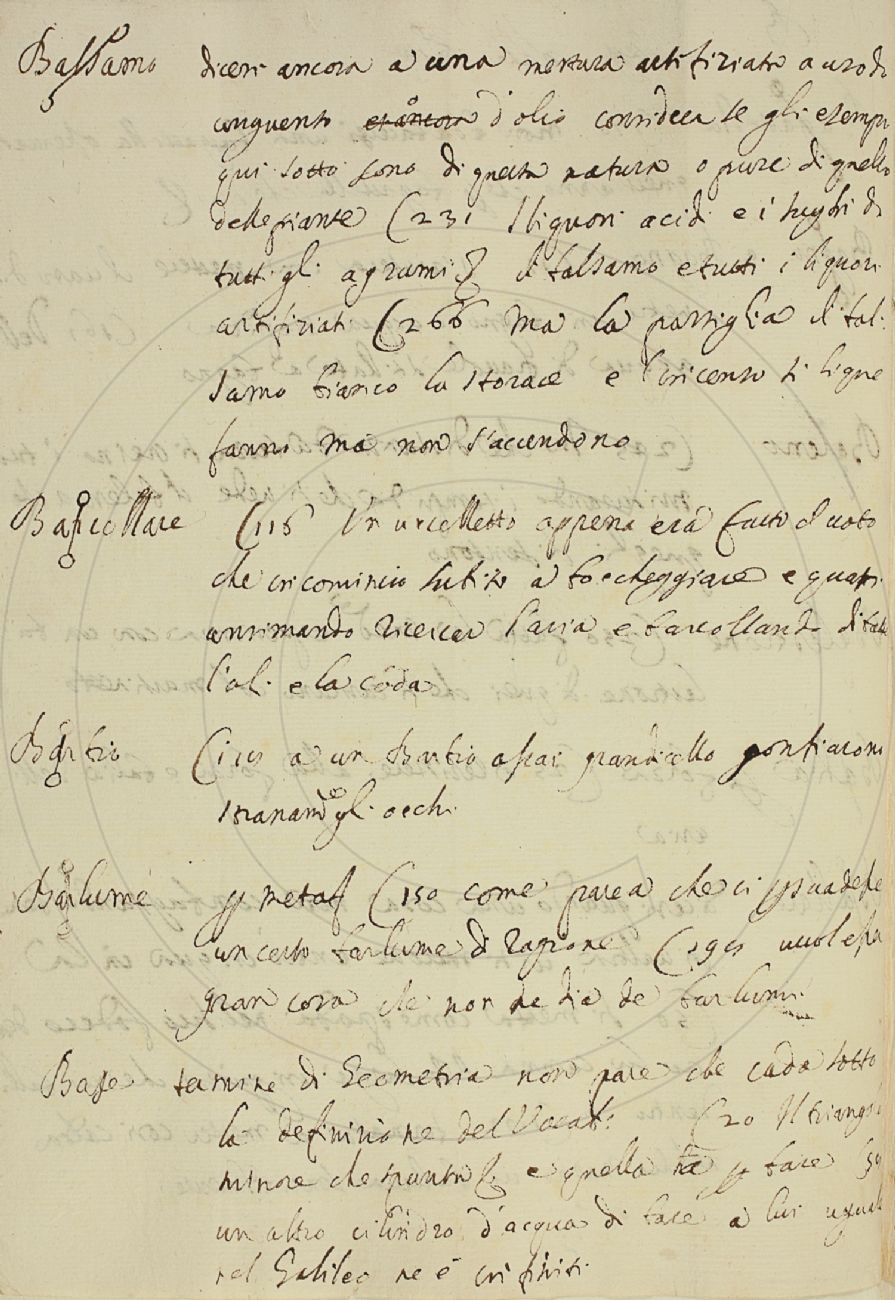 Balsamo dicesi ancora a una mestura artifiziata a uso di
unguento d'olio considera se gli esempi
qui sotto sono di questa natura o pure di quello
delle piante (231 I liquori acidi e i sughi di
tutti gli agrumi il balsamo e tutti i liquori
artifiziati (266 Ma la pastiglia il bal:
samo bianco la storace e l'incenso si lique
fanno ma non s'accendono
Barcollare (116 Un uccelletto appena era fatto il voto
che incominciò subito a boccheggiare e quasi
ansimando ricercar l'aria e barcollando dibatter
l'ali e la coda
Barbio a un Barbio assai grandicello gonfiaronsi
stranamte gli occhi
Barlume p metaf (150 come parea che ci psuadesse
un certo barlume di ragione uuol esser
gran cosa che non ne dia de barlumi
Base termine di Geometria non pare che cada sotto
la definizione del Vocab: (20 Il triangolo
minore che spunta e quella ha p base
un altro cilindro d'acqua di base a lui uguale
nel Galileo ne è infiniti